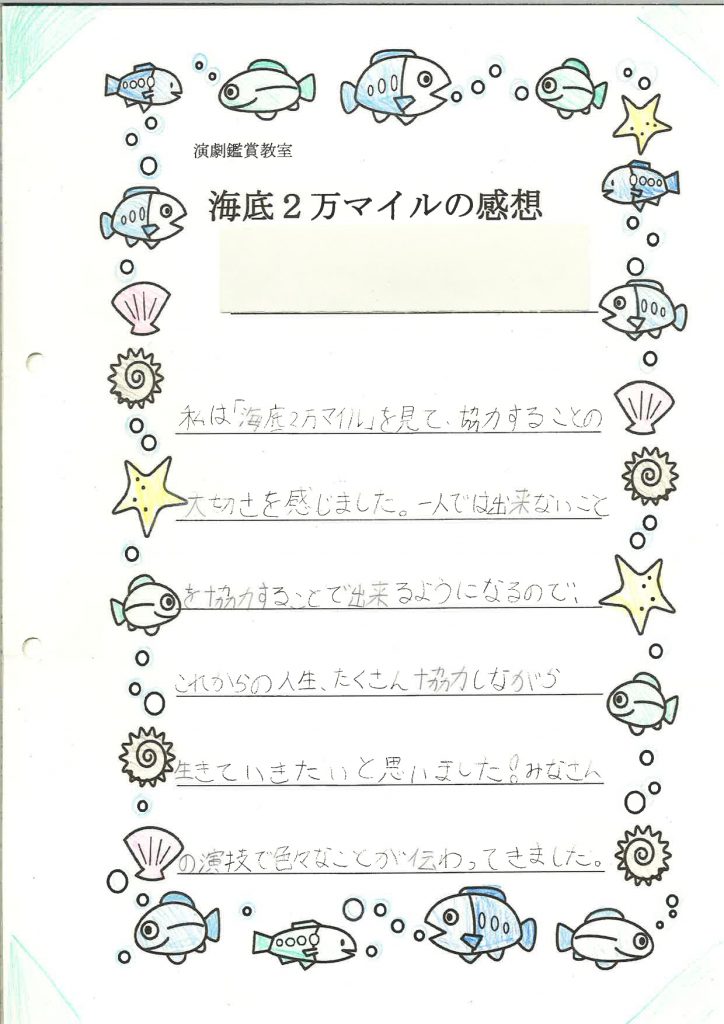 演劇鑑賞教室
海底２万マイルの感想
私は「海底2万マイル」を見て、協力することの
大切さを感じました。一人では出来ないこと
を協力することで出来るようになるので、
これからの人生、たくさん協力しながら
生きていきたいと思いました!みなさん
の演技で色々なことが伝わってきました。